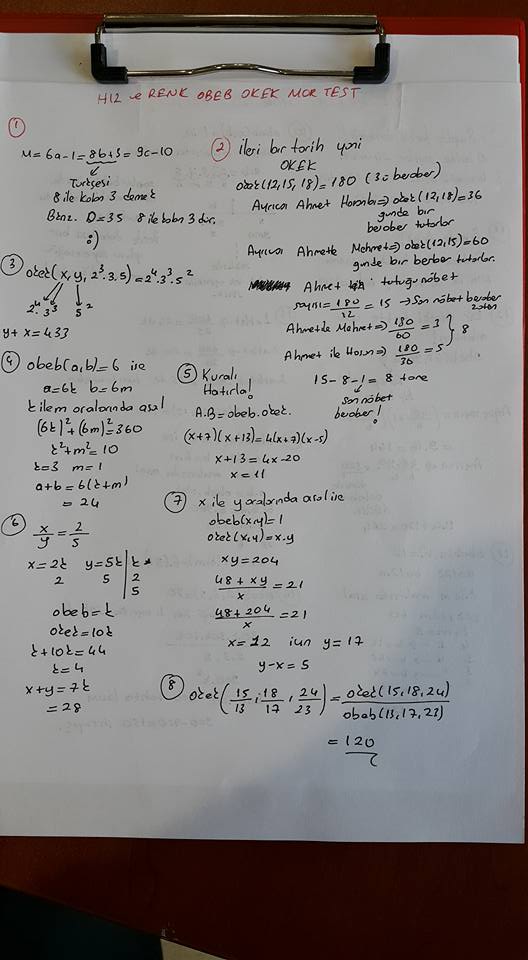 HIZ ve RENK OBEB OKEK MOR TEST
1
M = 6a-1 = 8b+3 = 9c-10
Türkçesi
8 ile kalan 3 demek
Benz. D = 35 8 ile kalan 3 dür.
:)
2 ileri bir tarih yani
OKEK
okek(12,15,18) = 180 (3ü beraber)
Ayrıca Ahmet Hasanla => okek(12,18) = 36
günde bir
beraber tutarlar
Ayrıca Ahmetle Mehmet => okek(12,15) = 60
günde bir beraber tutarlar.
Ahmet tuttuğu nöbet
sayısı = 180/12 = 15 -> Son nöbet beraber
zaten
Ahmetle Mehmet => 180/60 = 3
Ahmet ile Hasan => 180/36 = 5 } 8
15-8-1 = 8 tane
son nöbet
beraber!
3 okek(x, y, 2³.3.5) = 2⁴.3³.5²
2⁴.3³ 5²
y + x = 433
4 obeb(a,b) = 6 ise
a = 6k b = 6m
k ile m aralarında asal
(6k)² + (6m)² = 360
k² + m² = 10
k = 3 m = 1
a+b = 6(k+m)
= 24
5 Kuralı
Hatırla!
A.B = obeb.okek.
(x+7)(x+13) = 4(x+7)(x-5)
x+13 = 4x-20
x = 11
6 x/y = 2/5
x = 2k y = 5k | k
2 5 | 2
5
obeb = k
okek = 10k
k + 10k = 44
k = 4
x+y = 7k
= 28
7 x ile y aralarında asal ise
obeb(x,y) = 1
okek(x,y) = x.y
xy = 204
48 + xy / x = 21
48 + 204 / x = 21
x = 12 için y = 17
y-x = 5
8 okek(15/13, 18/17, 24/23) = okek(15,18,24) / obeb(13,17,23)
= 120